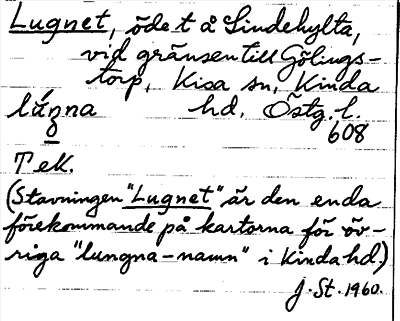 Lugnet, öde t å Lindehylta,
vid gränsen till Gölings-
torp, Kisa sn, Kinda
hd, Östg. l.
608
Tek.
(Stavningen "Lugnet" är den enda
förekommande på kartorna för öv-
riga "lungna-namn" i Kinda hd.)
J. St. 1960.